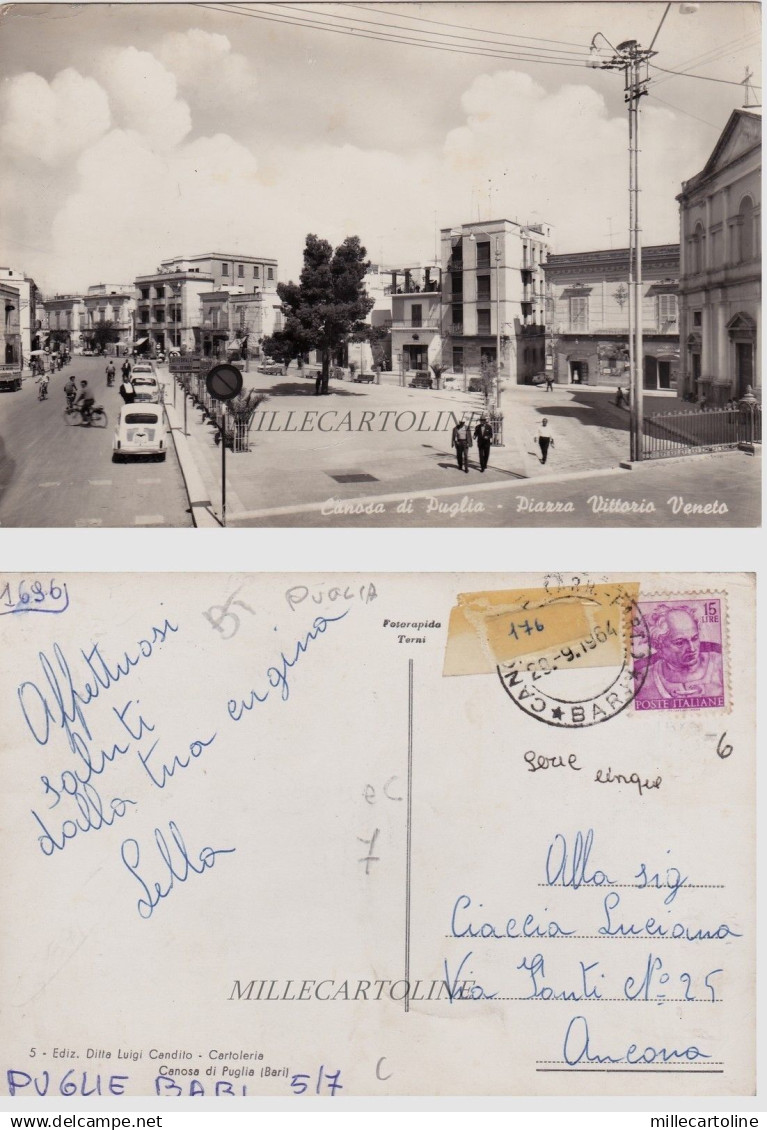 MILLECARTOLINE
Canosa di Puglia - Piazza Vittorio Veneto
1696
BT PUGLIA
Fotorapida
Terni
176
20-9.1964
BARI
15
LIRE
POSTE ITALIANE
6
Serie cinque
Affettuosi
saluti
dalla tua cugina
Lella
ec
7
Alla sig.
Ciaccia Luciana
Via Santi N° 25
Ancona
MILLECARTOLINE
5 - Ediz. Ditta Luigi Candito - Cartoleria
Canosa di Puglia (Bari)
PUGLIE BARI 5/7
C
millecartoline
www.delcampe.net